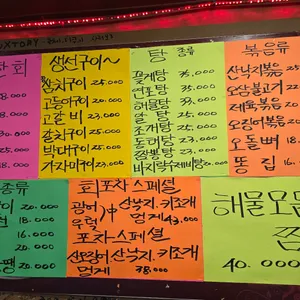 산회
8.000
8.000
18.000
생선구이~
삼치구이 25.000
고등어구이 20.000
고갈비 23.000
갈치구이 25.000
박대구이 25.000
가자미구이 23.000
탕 종류
꽃게탕 35.000
연포탕 35.000
해물탕 33.000
알탕 25.000
조개탕 25.000
동태탕 25.000
짬뽕탕 22.000
바지락수제비탕 20.000
볶음류
산낙지볶음
오삼불고기 22.000
제육볶음 20.000
오징어볶음 20.000
오돌뼈 18.000
똥집 16.000
종류
20.000
18.000
16.000
20.000
20.000
회포차스페셜
광어 우럭 中 산낙지.키조개
멍게 43.000
포차스페셜
산오징어 산낙지.키조개
멍게 38.000
해물모듬
찜
40.000